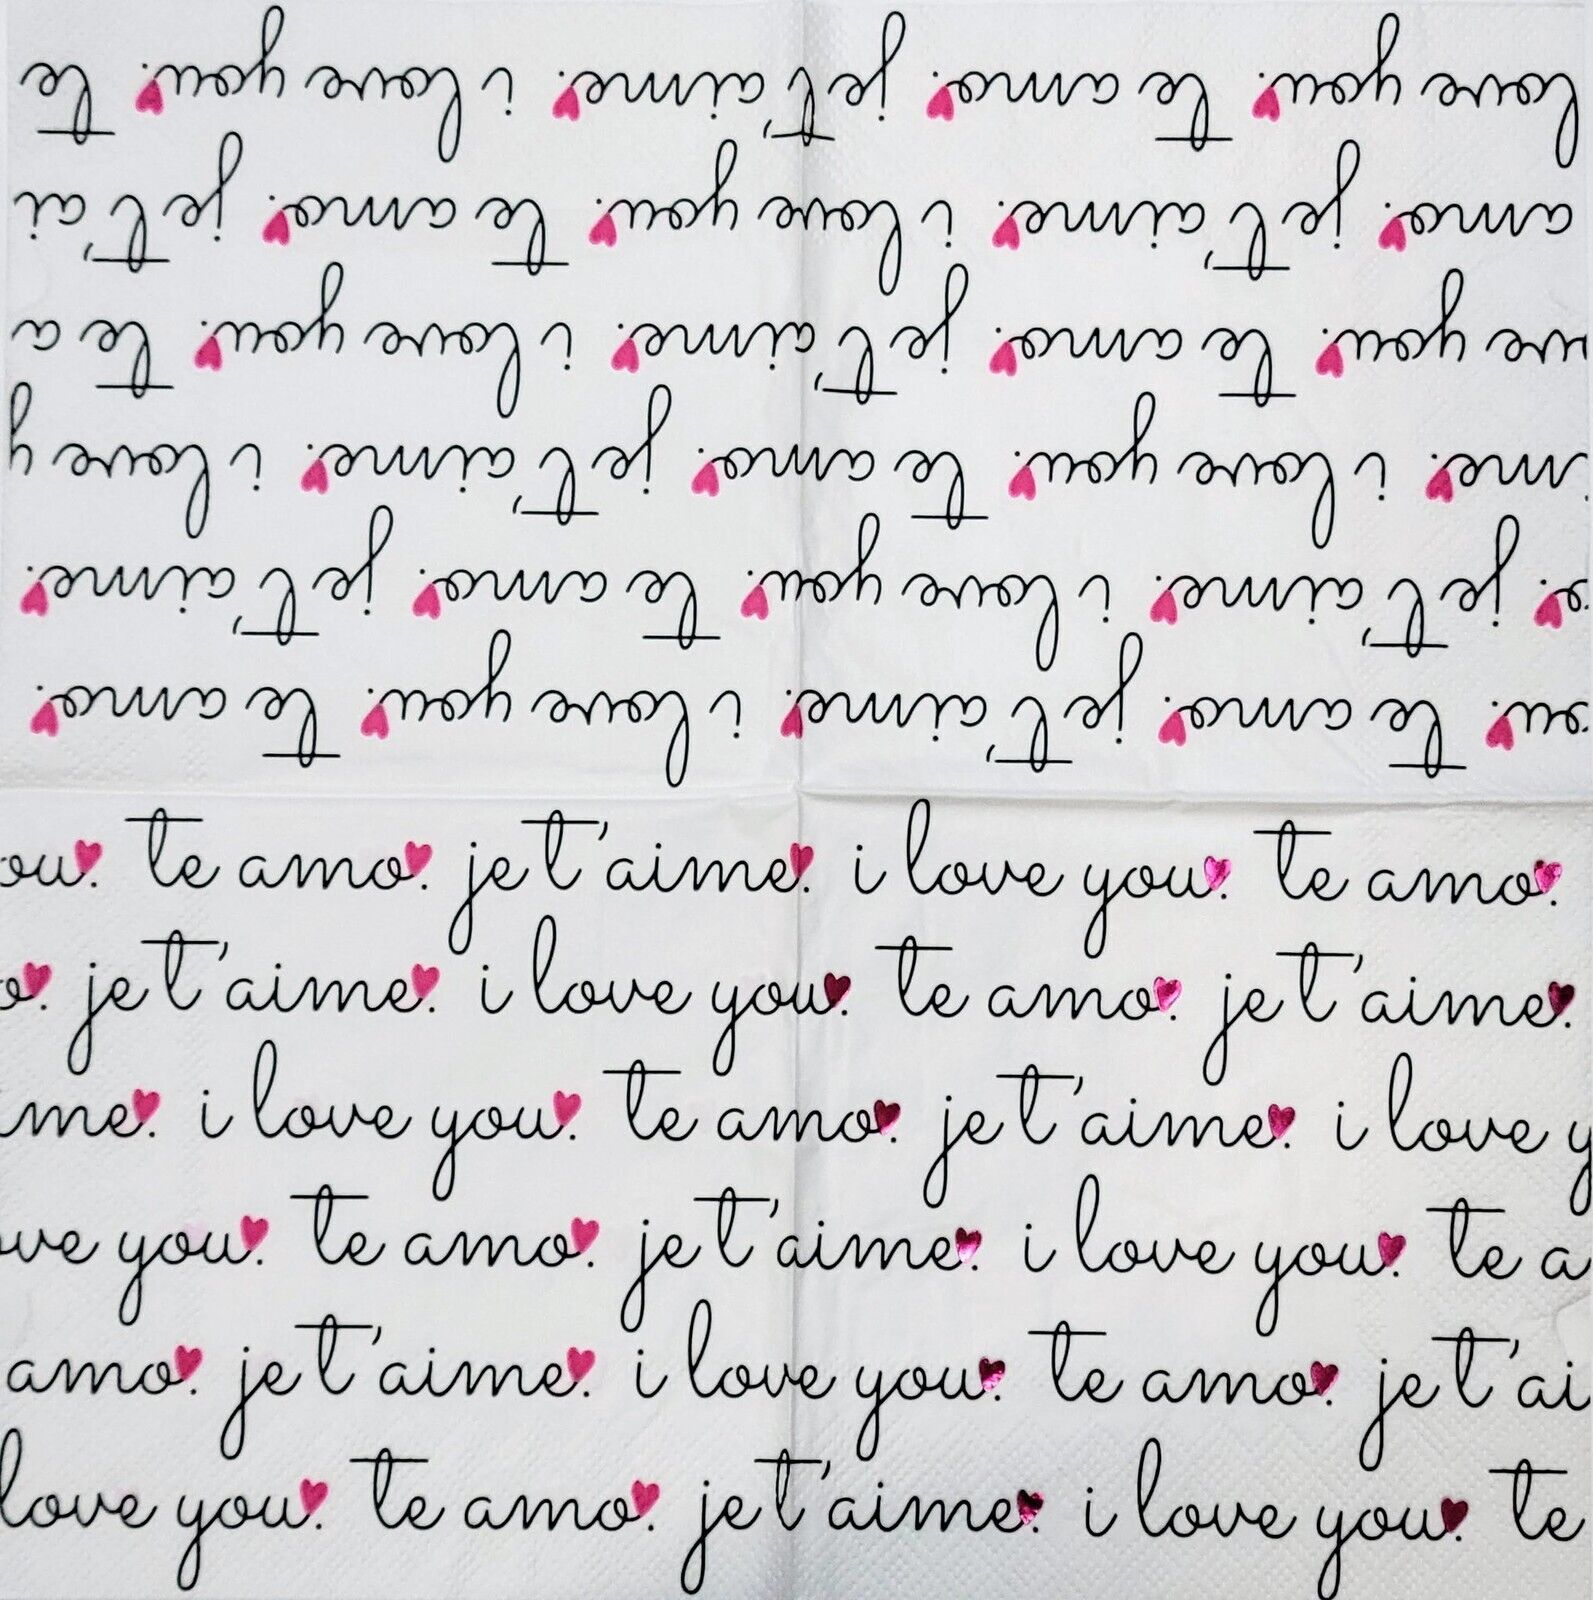 love you. te amo. je t'aime. i love you. te
amo. je t'aime. i love you. te amo. je t'ai
ve you. te amo. je t'aime. i love you. te a
me. i love you. te amo. je t'aime. i love y
e. je t'aime. i love you. te amo. je t'aime.
ou. te amo. je t'aime. i love you. te amo.
ou. te amo. je t'aime. i love you. te amo.
o. je t'aime. i love you. te amo. je t'aime.
ime. i love you. te amo. je t'aime. i love y
ove you. te amo. je t'aime. i love you. te a
amo. je t'aime. i love you. te amo. je t'ai
love you. te amo. je t'aime. i love you. te